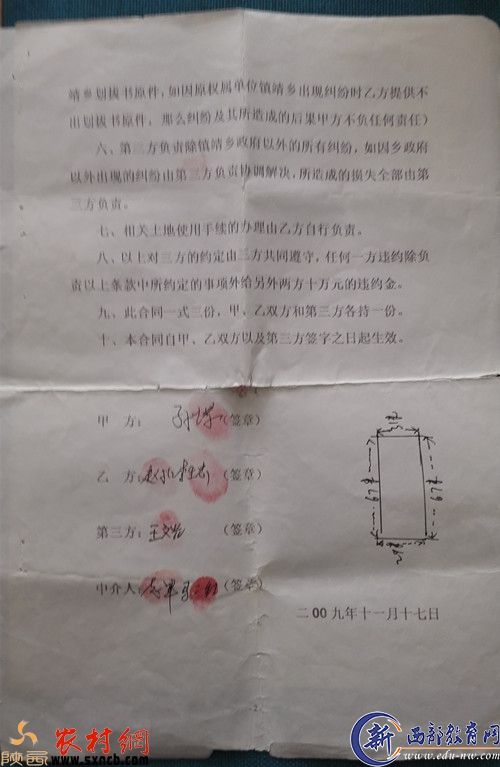 靖乡划拨书原件,如因原权属单位镇靖乡出现纠纷时乙方提供不
出划拨书原件,那么纠纷及其所造成的后果甲方不负任何责任)
六、第三方负责除镇靖乡政府以外的所有纠纷,如因乡政府
以外出现的纠纷由第三方负责协调解决,所造成的损失全部由第
三方负责。
七、相关土地使用手续的办理由乙方自行负责。
八、以上对三方的约定由三方共同遵守,任何一方违约除负
责以上条款中所约定的事项外给另外两方十万元的违约金。
九、此合同一式三份,甲、乙双方和第三方各持一份。
十、本合同自甲、乙双方以及第三方签字之日起生效。
甲 方: (签章)
乙 方: (签章)
第三方: 王文 (签章)
中介人: (签章)
二00九年十一月十七日
陕西
农村網
www.sxncb.com
新 西部教育网
www.edu-nw.com